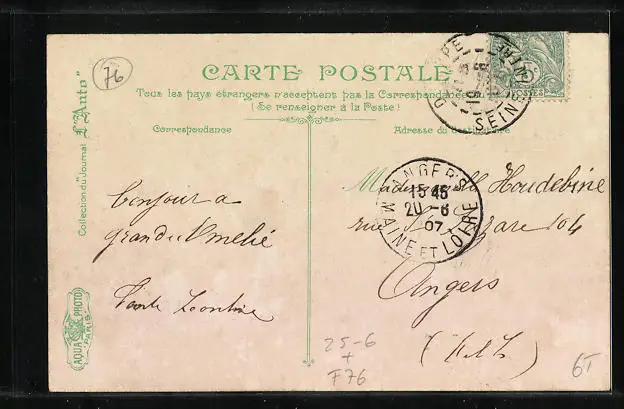 76
CARTE POSTALE
Tous les pays étrangers n'acceptent pas la Correspondance
(Se renseigner à la Poste)
Correspondance
Adresse du destinataire
Collection du Journal "L'Auto"
POSTES
SEINE
ANGERS
15 45
20 -6
07
MAINE ET LOIRE
Houdebine
rue gare 104
Angers
(M et L)
bonjour a
Tante Leontine
AQUA PHOTO
PARIS
25-6
+
F76
6T